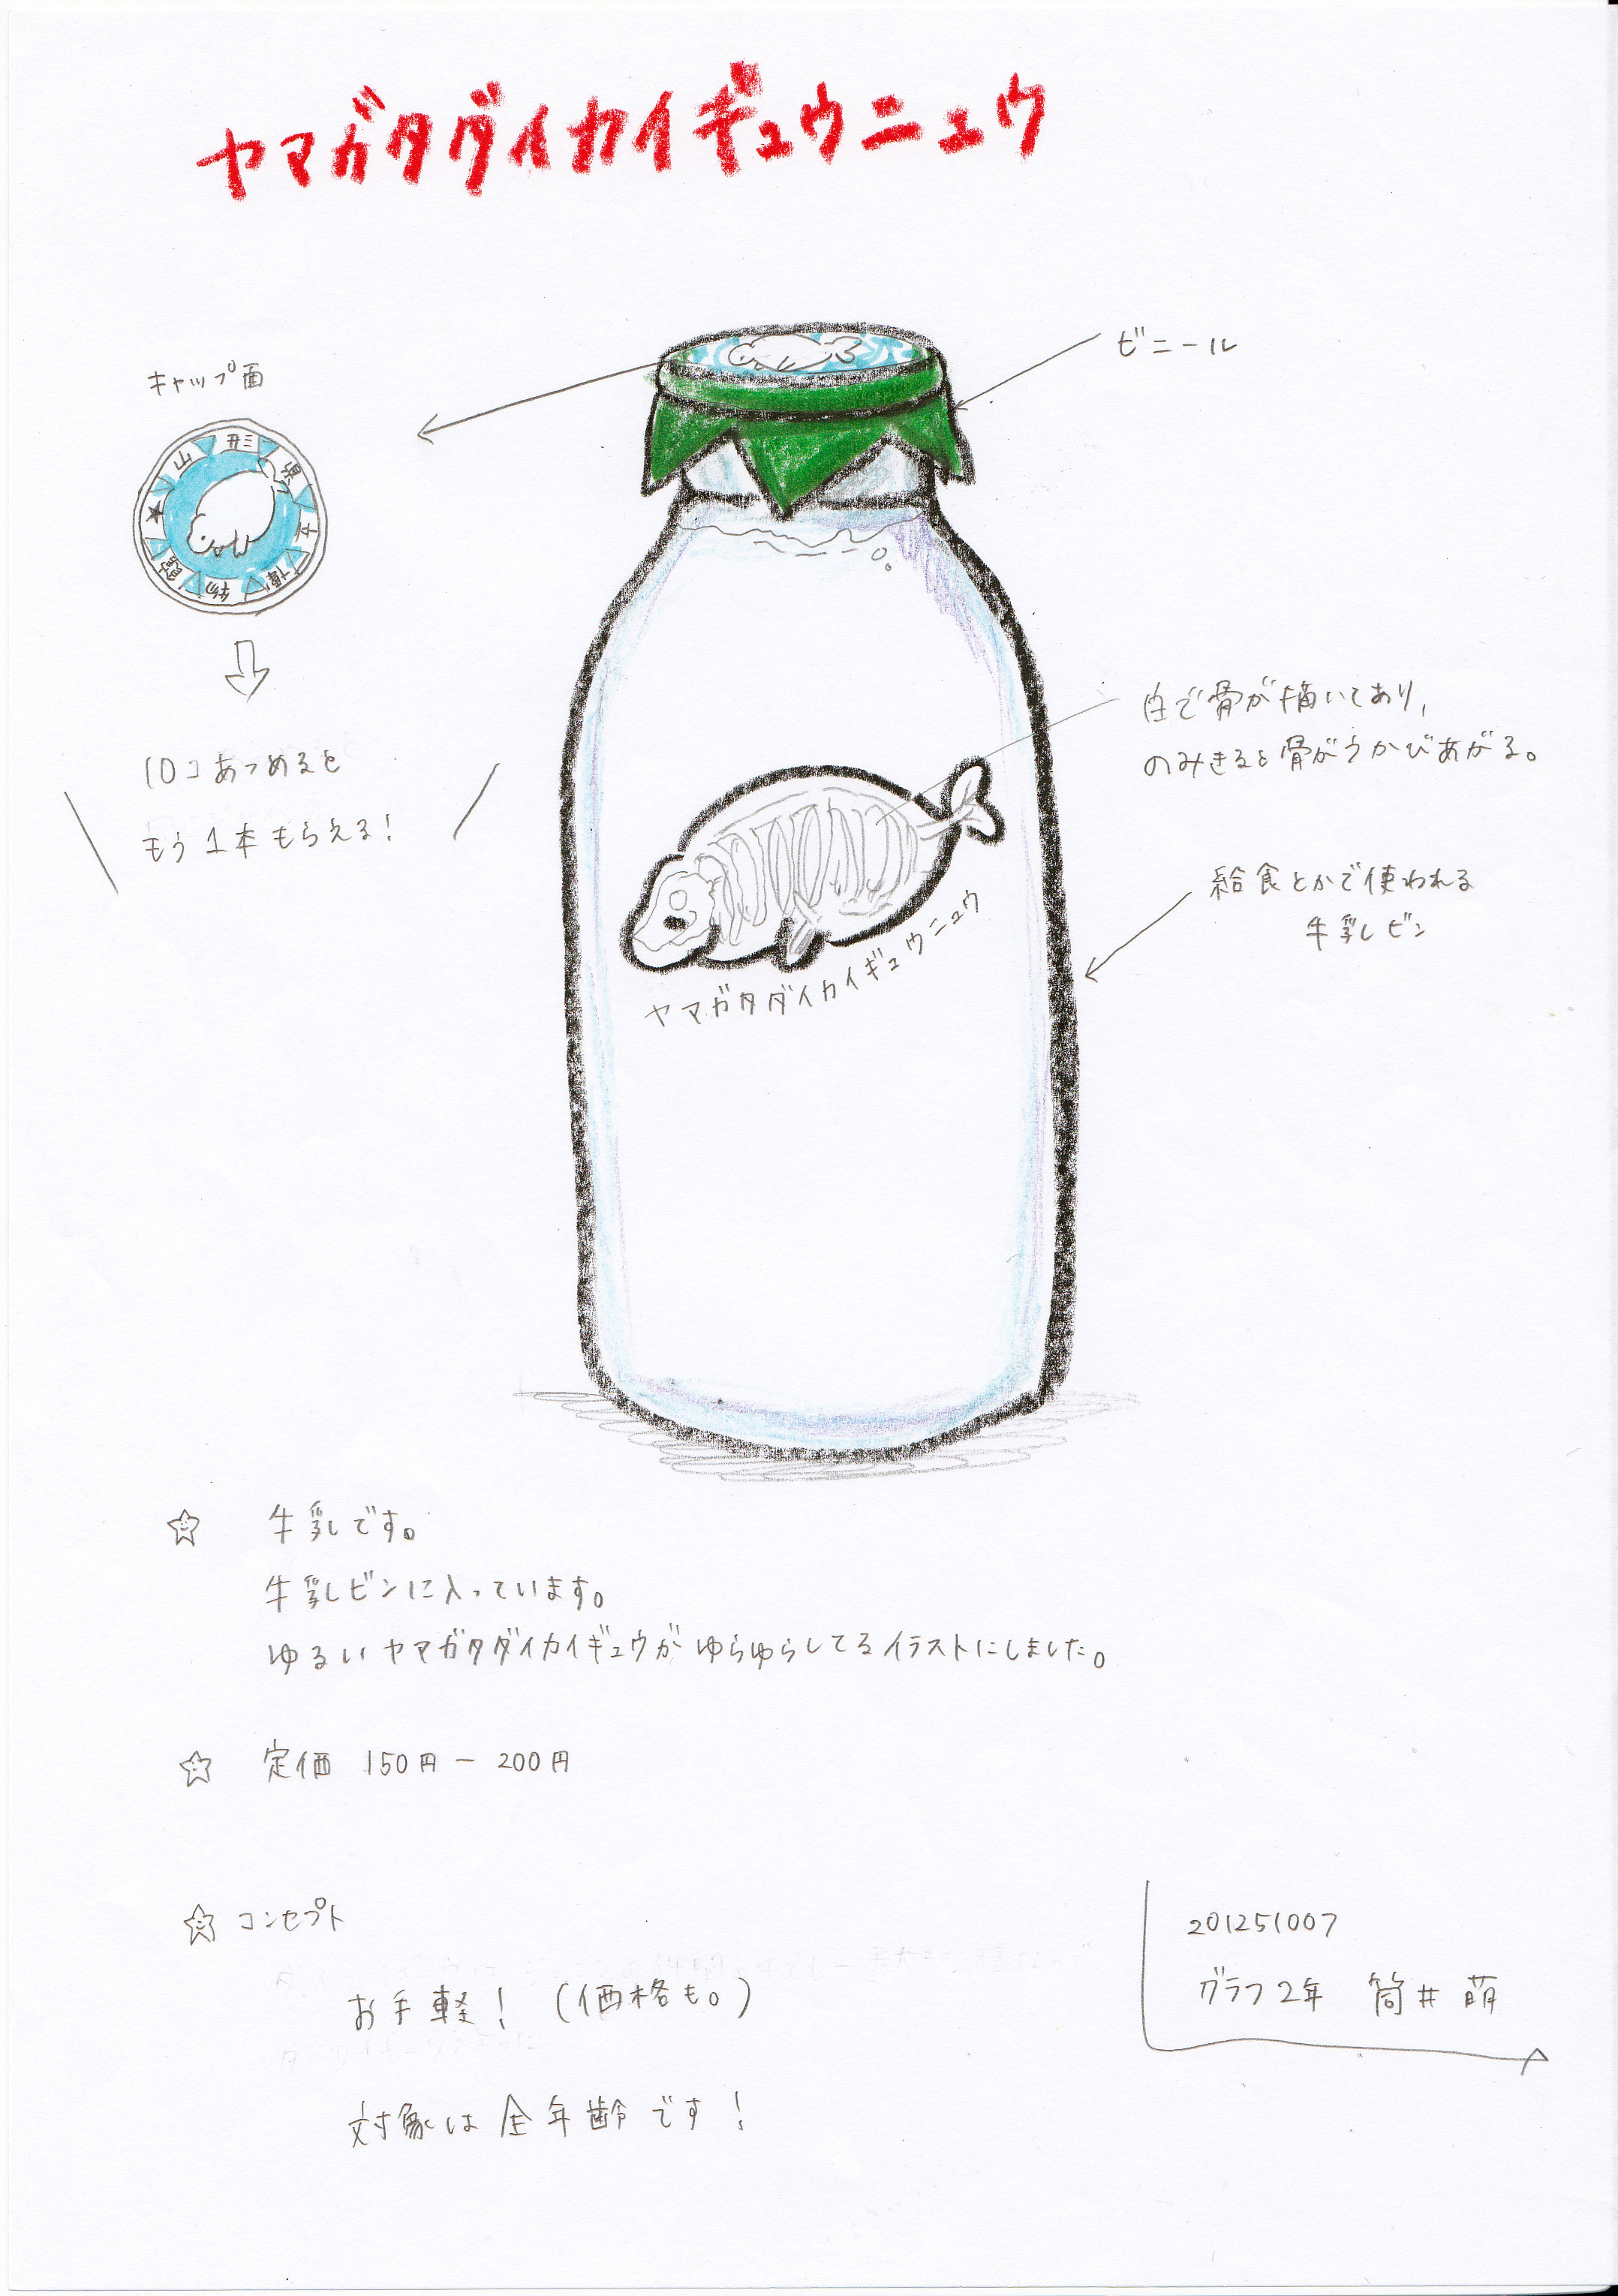 ヤマガタダイカイギュウニュウ
ビニール
キャップ面
山形県立博物館★
10コあつめると
もう1本もらえる!
白で骨が描いてあり,
のみきると骨がうかびあがる。
給食とかで使われる
牛乳ビン
ヤマガタダイカイギュウニュウ
☆ 牛乳です。
牛乳ビンに入っています。
ゆるいヤマガタダイカイギュウがゆらゆらしてるイラストにしました。
☆ 定価 150円-200円
☆ コンセプト
お手軽! (価格も。)
対象は全年齢です!
201251007
グラフ2年 筒井 萌